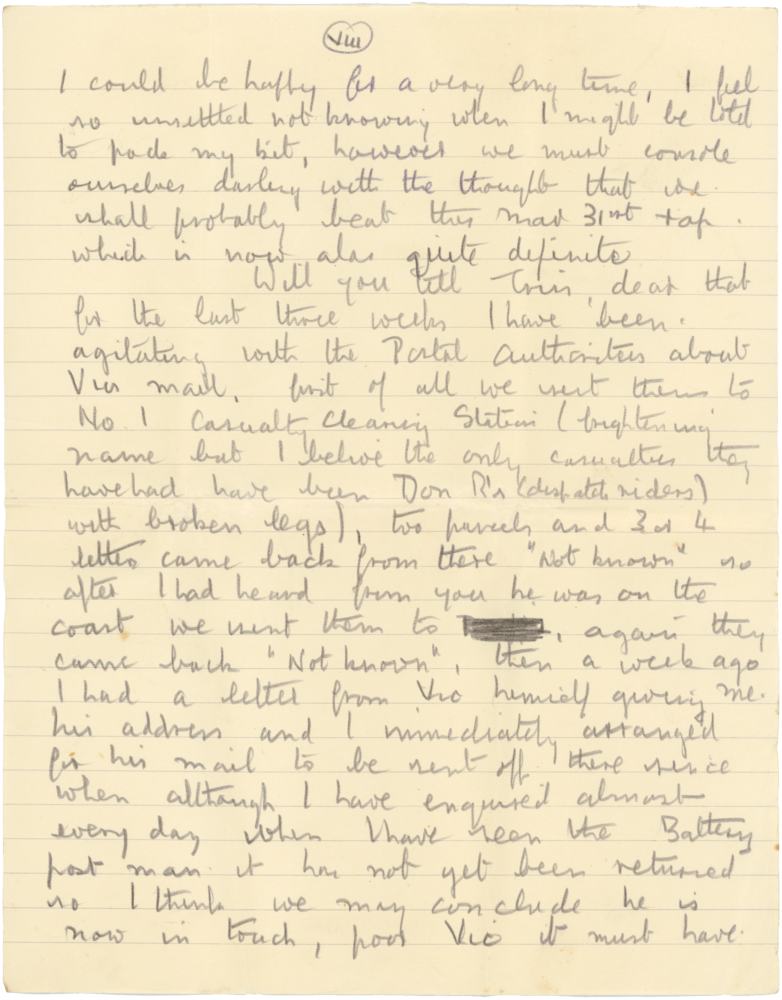 VIII
I could be happy for a very long time, I feel
so unsettled not knowing when I might be told
to pack my kit, however we must console
ourselves darling with the thought that we
shall probably beat this mad 31st
which is now alas quite definite
Will you tell dear that
for the last three weeks I have been
agitating with the Postal Authorities about
Vics mail, first of all we sent them to
No. 1 Casualty Clearing Station (frightening
name but I believe the only casualties they
have had have been Don R's (despatch riders)
with broken legs), two parcels and 3 or 4
letters came back from there "Not known" so
after I had heard from you he was on the
coast we sent them to , again they
came back "Not known", then a week ago
I had a letter from Vic himself giving me
his address and I immediately arranged
for his mail to be sent off there since
when although I have enquired almost
every day when I have seen the Battery
post man it has not yet been returned
so I think we may conclude he is
now in touch, poor Vic it must have